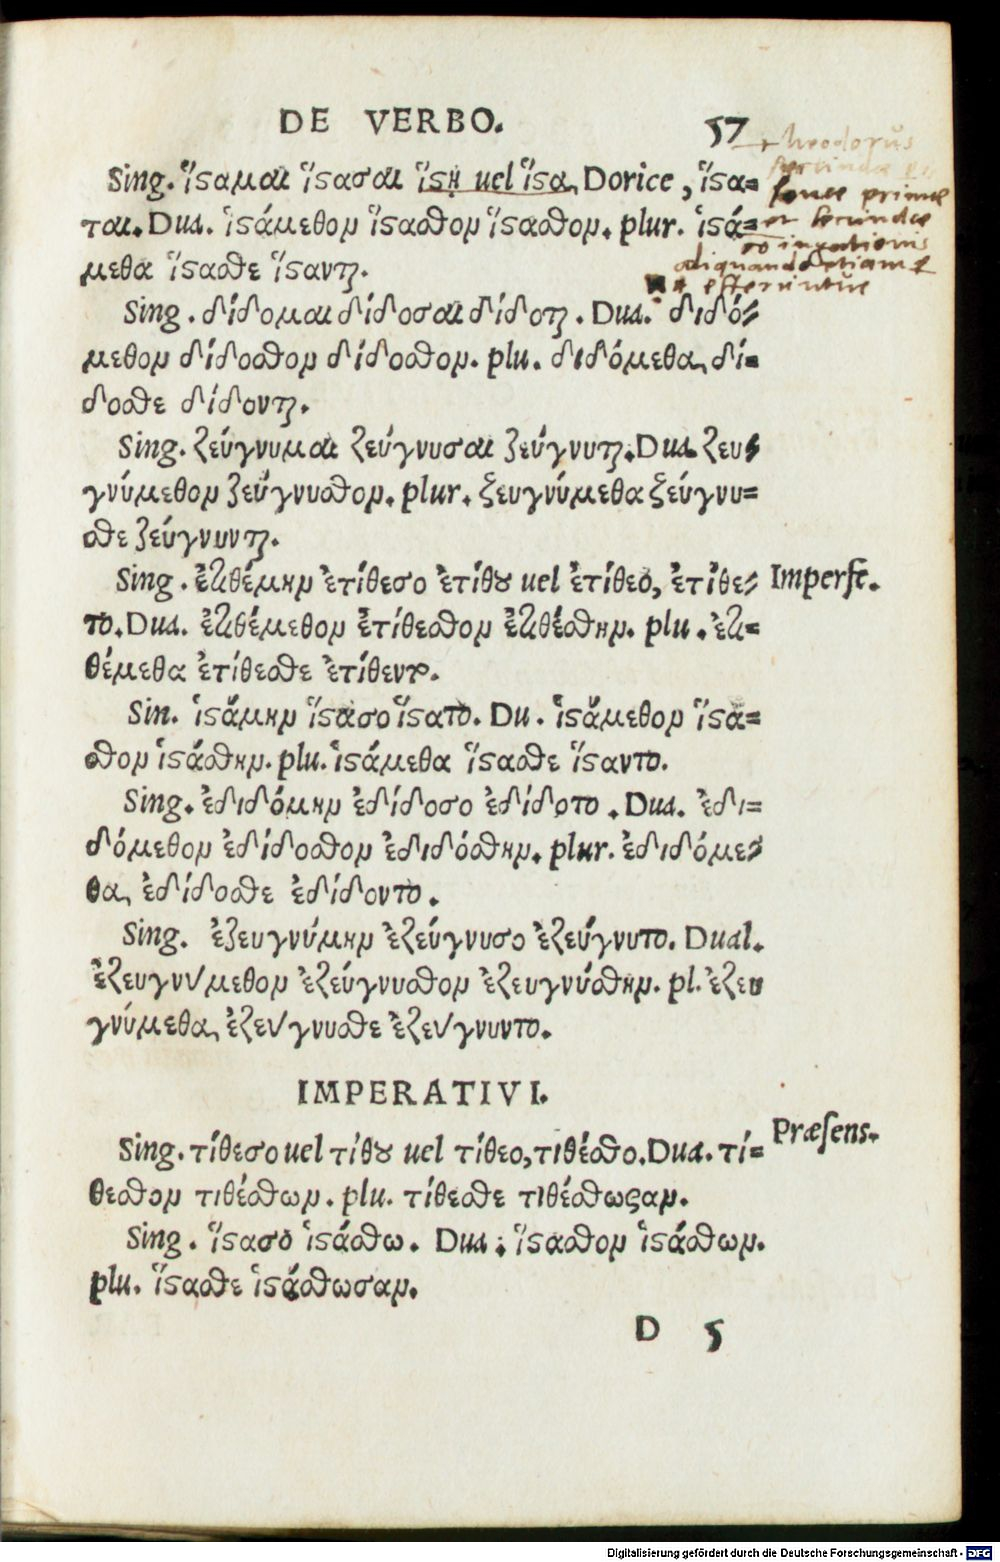 DE VERBO. 57
Sing. ἵϛαμαι ἵϛασαι ἵϛῃ uel ἵϛα, Dorice, ἵϛα=
ται. Dua. ἱϛάμεθον ἵϛασθον ἵϛασθον. plur. ἱϛά=
μεθα ἵϛασθε ἵϛανται.
Sing. δίδομαι δίδοσαι δίδοται. Dua. διδό=
μεθον δίδοσθον δίδοσθον. plu. διδόμεθα, δί=
δοσθε δίδονται.
Sing. ζεύγνυμαι ζεύγνυσαι ζεύγνυται. Dua. ζευ=
γνύμεθον ζεύγνυσθον. plur. ξευγνύμεθα ξεύγνυ=
σθε ζεύγνυνται.
Sing. ἐτιθέμην ἐτίθεσο ἐτίθου uel ἐτίθεο, ἐτίθε= Imperfe.
το. Dua. ἐτιθέμεθον ἐτίθεσθον ἐτιθέσθην. plu. ἐτι=
θέμεθα ἐτίθεσθε ἐτίθεντο.
Sin. ἱϛάμην ἵϛασο ἵϛατο. Du. ἱϛάμεθον ἵϛα=
σθον ἱϛάσθην. plu. ἱϛάμεθα ἵϛασθε ἵϛαντο.
Sing. ἐδιδόμην ἐδίδοσο ἐδίδοτο. Dua. ἐδι=
δόμεθον ἐδίδοσθον ἐδιδόσθην. plur. ἐδιδόμε=
θα, ἐδίδοσθε ἐδίδοντο.
Sing. ἐζευγνύμην ἐζεύγνυσο ἐζεύγνυτο. Dual.
ἐζευγνύμεθον ἐζεύγνυσθον ἐζευγνύσθην. pl. ἐζευ
γνύμεθα, ἐζεύγνυσθε ἐζεύγνυντο.
IMPERATIVI.
Sing. τίθεσο uel τίθου uel τίθεο, τιθέσθο. Dua. τί= Præsens.
θεσθον τιθέσθων. plu. τίθεσθε τιθέσθωςαν.
Sing. ἵϛασο ἱϛάσθω. Dua. ἵϛασθον ἱϛάσθων.
plu. ἵϛασθε ἱϛάσθωσαν.
D 5
theodorus
primae
et secundae
coniugationis
aliquando etiam
efferuntur
Digitalisierung gefördert durch die Deutsche Forschungsgemeinschaft - DFG